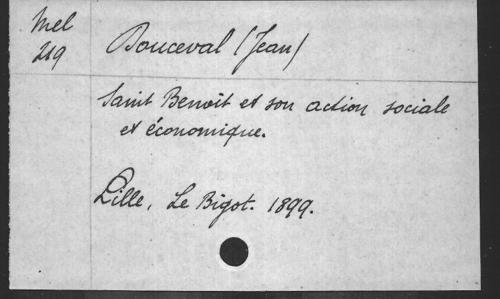 Mel
219
Bouceval (Jean)
Saint Benoit et son action sociale
et économique.
Lille, Le Bigot. 1899.